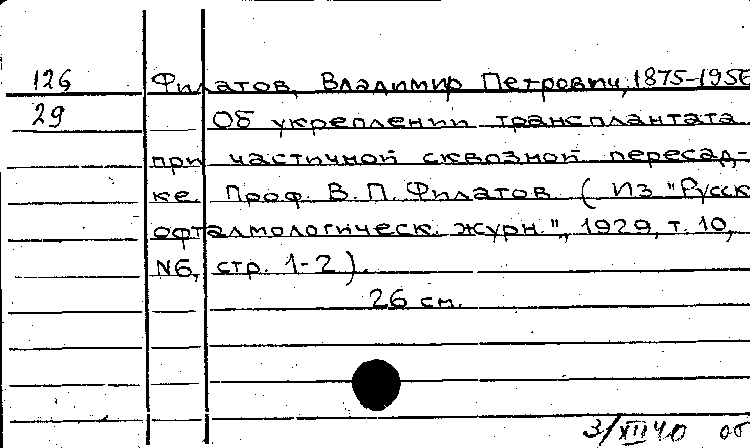 126 Филатов, Владимир Петрович, 1875-1956
29 Об укреплении трансплантата
при частичной сквозной пересад-
ке Проф. В.П. Филатов. (Из "Русск
офталмологическ. журн.", 1929, т. 10,
N6, стр. 1-2).
26 см.
3/XII 40 об